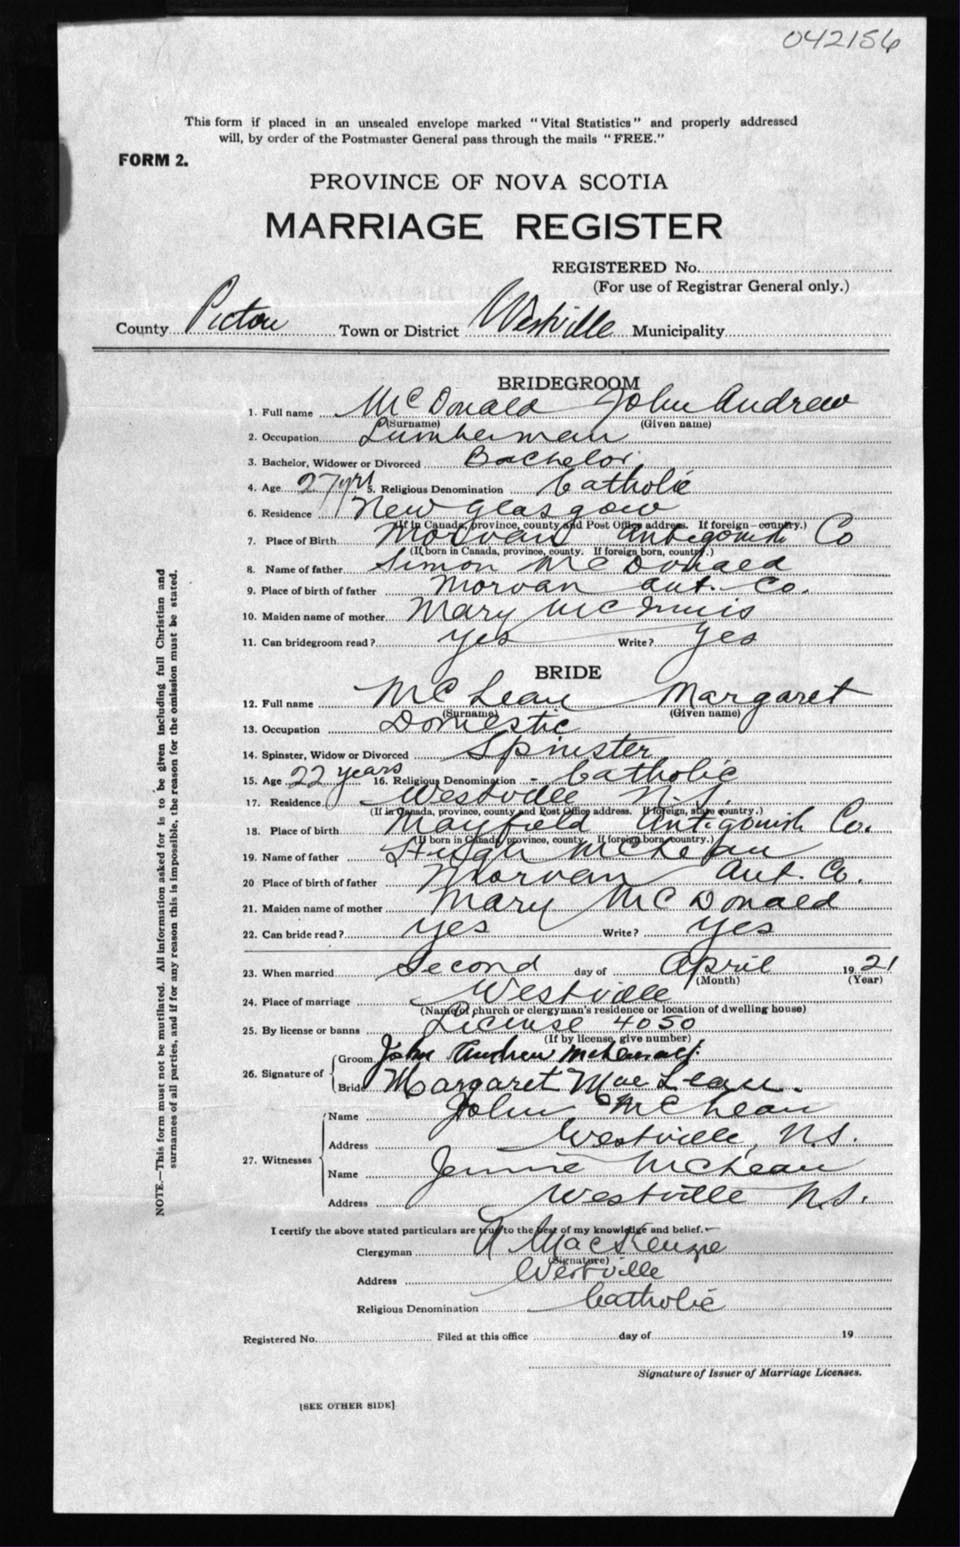 042156
This form if placed in an unsealed envelope marked "Vital Statistics" and properly addressed
will, by order of the Postmaster General pass through the mails "FREE."
FORM 2.
PROVINCE OF NOVA SCOTIA
MARRIAGE REGISTER
REGISTERED No.
(For use of Registrar General only.)
County Pictou Town or District Westville Municipality
BRIDEGROOM
1. Full name McDonald John Andrew
(Surname) (Given name)
2. Occupation Lumberman
3. Bachelor, Widower or Divorced Bachelor
4. Age 27 yrs 5. Religious Denomination Catholic
6. Residence New Glasgow
(If in Canada, province, county and Post Office address. If foreign—country.)
7. Place of Birth Morvan Antigonish Co
(If born in Canada, province, county. If foreign born, country.)
8. Name of father Simon McDonald
9. Place of birth of father Morvan Ant. Co.
10. Maiden name of mother Mary McInnis
11. Can bridegroom read? yes Write? yes
BRIDE
12. Full name McLean Margaret
(Surname) (Given name)
13. Occupation Domestic
14. Spinster, Widow or Divorced Spinster
15. Age 22 years 16. Religious Denomination - Catholic
17. Residence Westville N.S.
(If in Canada, province, county and Post Office address. If foreign, state country.)
18. Place of birth Maryfield Antigonish Co.
(If born in Canada, province, county. If foreign born, country.)
19. Name of father Hugh McLean
20 Place of birth of father Morvan Ant. Co.
21. Maiden name of mother Mary McDonald
22. Can bride read? yes Write? yes
23. When married Second day of April 1921
(Month) (Year)
24. Place of marriage Westville
(Name of church or clergyman's residence or location of dwelling house)
25. By license or banns License 4050
(If by license, give number)
26. Signature of Groom John Andrew
Bride Margaret MacLean.
27. Witnesses Name John McLean
Address Westville, N.S.
Name Jennie McLean
Address Westville N.S.
I certify the above stated particulars are true to the best of my knowledge and belief.
Clergyman MacKenzie
(Signature)
Address Westville
Religious Denomination Catholic
Registered No. Filed at this office day of 19
Signature of Issuer of Marriage Licenses.
[SEE OTHER SIDE]
NOTE.—This form must not be mutilated. All information asked for is to be given including full Christian and
surnames of all parties, and if for any reason this is impossible, the reason for the omission must be stated.